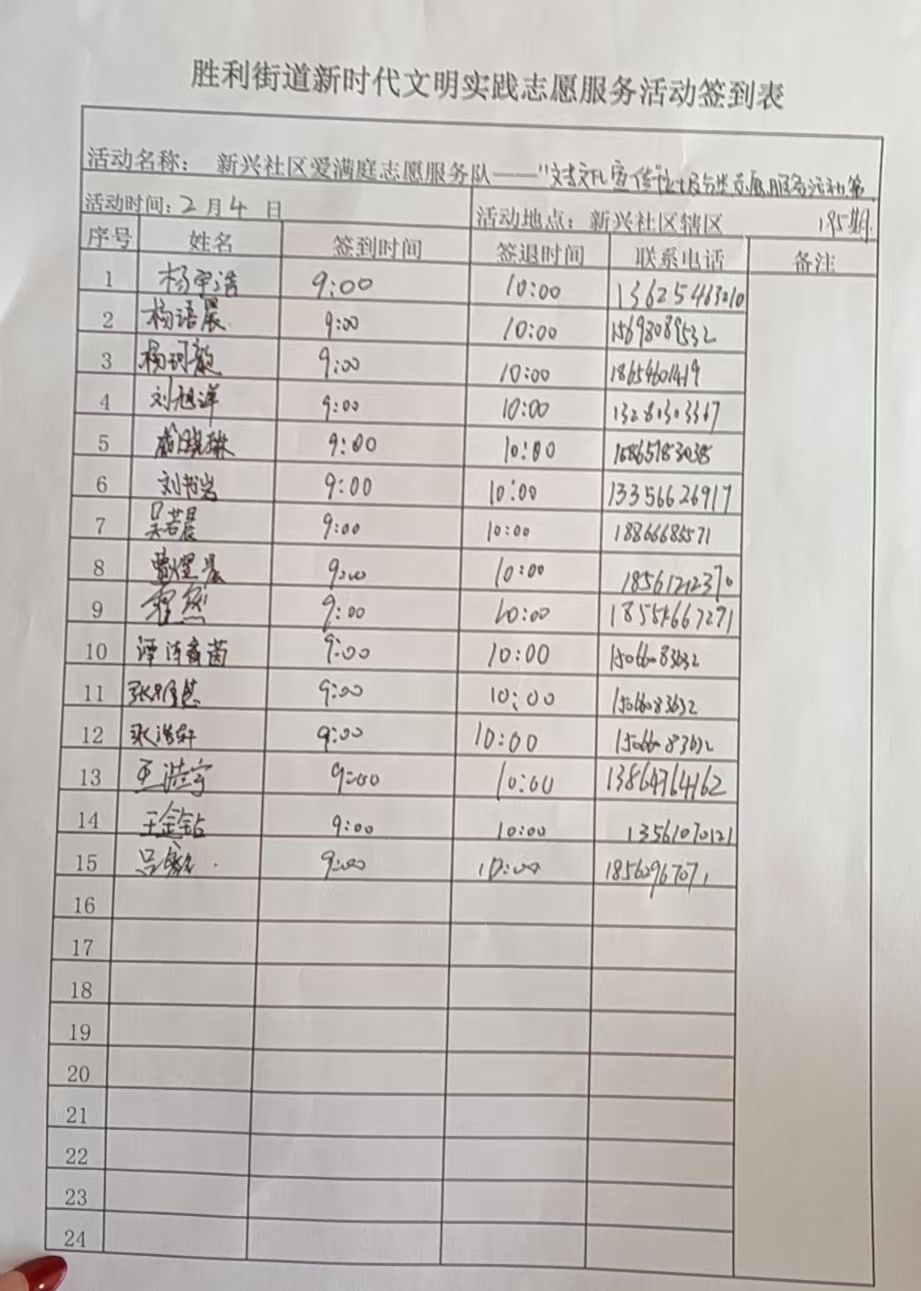 胜利街道新时代文明实践志愿服务活动签到表
活动名称： 新兴社区爱满庭志愿服务队——
活动时间：2月4日 活动地点：新兴社区辖区 195期
序号 姓名 签到时间 签退时间 联系电话 备注
1 杨宇浩 9:00 10:00 13625463210
2 杨语晨 9:00 10:00 15698089532
3 杨珂毅 9:00 10:00 18654601419
4 刘旭洋 9:00 10:00 13280303367
5 戚晓琳 9:00 10:00
6 刘书岩 9:00 10:00 13356626917
7 吴若晨 9:00 10:00 18866685571
8 9:00 10:00 18561212370
9 程然 9:00 10:00 18554667271
10 9:00 10:00 15066083632
11 9:00 10:00 15066083632
12 张浩轩 9:00 10:00 15066083632
13 王浩宇 9:00 10:00 13864764162
14 王金钻 9:00 10:00 13561070121
15 9:00 10:00 18562967071
16
17
18
19
20
21
22
23
24